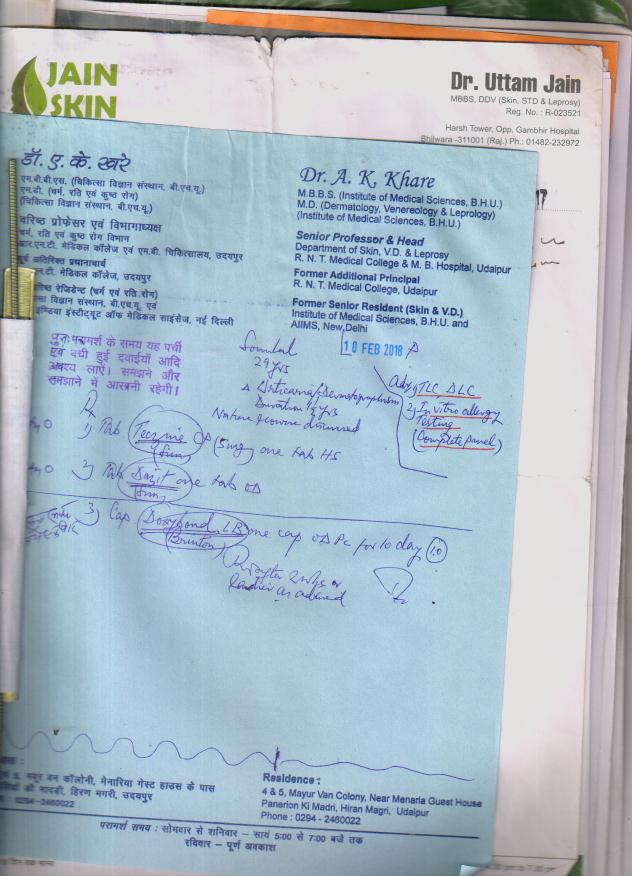 JAIN
SKIN
Dr. Uttam Jain
MBBS, DDV (Skin, STD & Leprosy)
Reg. No. : R-023521
Harsh Tower, Opp. Gambhir Hospital
Bhilwara -311001 (Raj.) Ph.: 01482-232972
डॉ. ए. के. खरे
एम.बी.बी.एस. (चिकित्सा विज्ञान संस्थान, बी.एच.यू.)
एम.डी. (चर्म, रति एवं कुष्ठ रोग)
(चिकित्सा विज्ञान संस्थान, बी.एच.यू.)
वरिष्ठ प्रोफेसर एवं विभागाध्यक्ष
चर्म, रति एवं कुष्ठ रोग विभाग
आर.एन.टी. मेडिकल कॉलेज एवं एम.बी. चिकित्सालय, उदयपुर
पूर्व अतिरिक्त प्रधानाचार्य
टी. मेडिकल कॉलेज, उदयपुर
रेजिडेन्ट (चर्म एवं रति रोग)
विज्ञान संस्थान, बी.एच.यू. एवं
इण्डिया इंस्टीट्यूट ऑफ मेडिकल साइंसेज, नई दिल्ली
Dr. A. K. Khare
M.B.B.S. (Institute of Medical Sciences, B.H.U.)
M.D. (Dermatology, Venereology & Leprology)
(Institute of Medical Sciences, B.H.U.)
Senior Professor & Head
Department of Skin, V.D. & Leprosy
R. N. T. Medical College & M. B. Hospital, Udaipur
Former Additional Principal
R. N. T. Medical College, Udaipur
Former Senior Resident (Skin & V.D.)
Institute of Medical Sciences, B.H.U. and
AIIMS, New Delhi
पुनः परामर्श के समय यह पर्ची
एवं बची हुई दवाईयाँ आदि
अवश्य लाएं। समझने और
समझाने में आसानी रहेगी।
10 FEB 2018
29 yrs
Urticaria/Dermatographism
Duration yrs
Nature & course discussed
Adv 1) TLC DLC
2) In vitro allergy
Testing
(Complete panel)
Rx
1) Tab Teczine OD (5mg) one tab HS
(Sun)
2) Tab Dazit one tab OD
(Sun)
3) Cap Doxybond LB one cap OD PC for 10 days 10
(Brinton)
R after 2 wks or
earlier as advised
5, मयूर वन कॉलोनी, मेनारिया गेस्ट हाउस के पास
की मादड़ी, हिरण मगरी, उदयपुर
: 0294-2460022
Residence :
4 & 5, Mayur Van Colony, Near Menaria Guest House
Panerion Ki Madri, Hiran Magri, Udaipur
Phone : 0294 - 2460022
परामर्श समय : सोमवार से शनिवार - सायं 5:00 से 7:00 बजे तक
रविवार - पूर्ण अवकाश